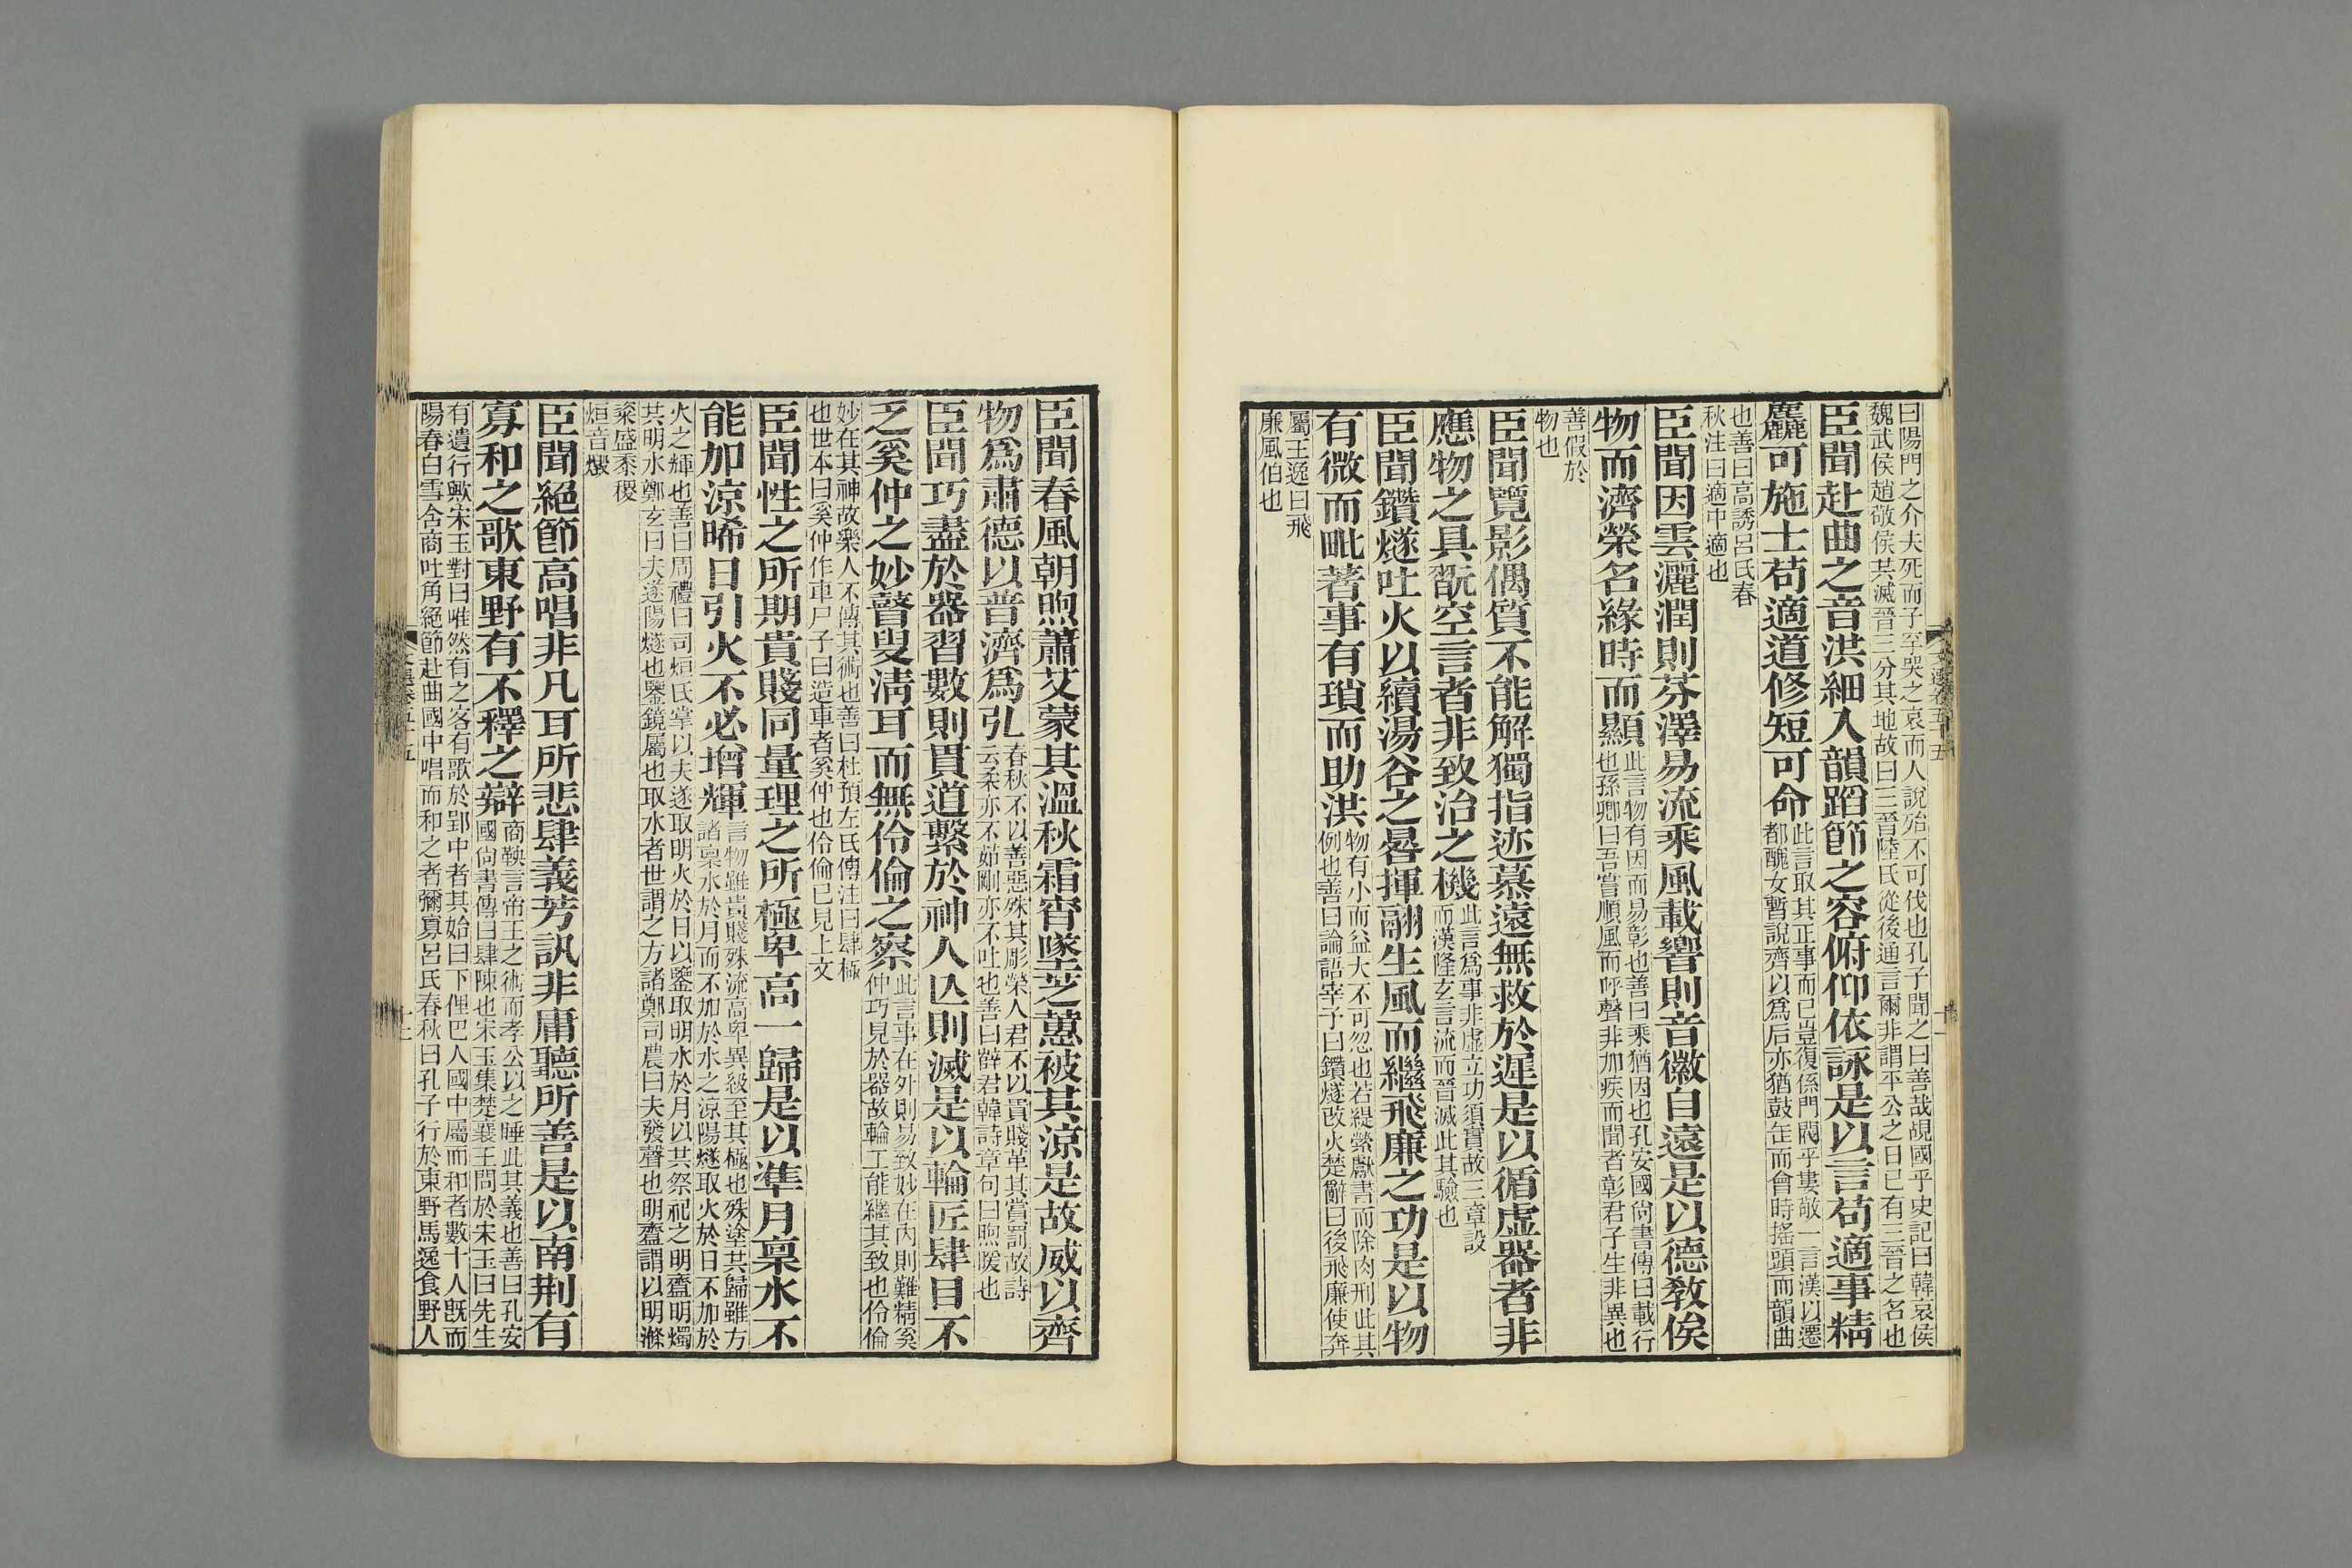 曰陽門之介夫死而子罕哭之哀而人說殆不可伐也孔子聞之曰善哉覘國乎史記曰韓哀侯
魏武侯趙敬侯共滅晉三分其地故曰三晉陸氏從後通言爾非謂平公之日已有三晉之名也
臣聞赴曲之音洪細入韻蹈節之容俯仰依詠是以言苟適事精
麤可施士苟適道修短可命
此言取其正事而已豈復係門閥乎婁敬一言漢以遷
都醜女暫說齊以爲后亦猶鼓缶而會時搖頭而韻曲
也善曰高誘呂氏春
秋注曰適中適也
臣聞因雲灑潤則芬澤易流乘風載響則音徽自遠是以德教俟
物而濟榮名緣時而顯
此言物有因而易彰也善曰乘猶因也孔安國尙書傳曰載行
也孫卿曰吾嘗順風而呼聲非加疾而聞者彰君子生非異也
善假於
物也
臣聞覽影偶質不能解獨指迹慕遠無救於遲是以循虛器者非
應物之具翫空言者非致治之機
此言爲事非虛立功須實故三章設
而漢隆玄言流而晉滅此其驗也
臣聞鑽燧吐火以續湯谷之晷揮翮生風而繼飛廉之功是以物
有微而毗著事有瑣而助洪
物有小而益大不可忽也若緹縈獻書而除肉刑此其
例也善曰論語宰子曰鑽燧改火楚辭曰後飛廉使奔
屬王逸曰飛
廉風伯也
文選卷五十五
十一
臣聞春風朝煦蕭艾蒙其溫秋霜宵墜芝蕙被其涼是故威以齊
物爲肅德以普濟爲弘
春秋不以善惡殊其彫榮人君不以貴賤革其賞罰故詩
云柔亦不茹剛亦不吐也善曰薛君韓詩章句曰煦暖也
臣聞巧盡於器習數則貫道繫於神人亾則滅是以輪匠肆目不
乏奚仲之妙瞽叟淸耳而無伶倫之察
此言事在外則易致妙在內則難精奚
仲巧見於器故輪工能繼其致也伶倫
妙在其神故樂人不傳其術也善曰杜預左氏傳注曰肆極
也世本曰奚仲作車尸子曰造車者奚仲也伶倫已見上文
臣聞性之所期貴賤同量理之所極卑高一歸是以準月稟水不
能加涼晞日引火不必增輝
言物雖貴賤殊流高卑異級至其極也殊塗共歸雖方
諸稟水於月而不加於水之涼陽燧取火於日不加於
火之輝也善曰周禮曰司烜氏掌以夫遂取明火於日以鑒取明水於月以共祭祀之明齍明燭
共明水鄭玄曰夫遂陽燧也鑒鏡屬也取水者世謂之方諸鄭司農曰夫發聲也明齍謂以明滫
粢盛黍稷
烜音燬
臣聞絕節高唱非凡耳所悲肆義芳訊非庸聽所善是以南荆有
寡和之歌東野有不釋之辯
商鞅言帝王之術而孝公以之睡此其義也善曰孔安
國尙書傳曰肆陳也宋玉集楚襄王問於宋玉曰先生
有遺行歟宋玉對曰唯然有之客有歌於郢中者其始曰下俚巴人國中屬而和者數十人旣而
陽春白雪含商吐角絕節赴曲國中唱而和之者彌寡呂氏春秋曰孔子行於東野馬逸食野人
文選卷五十五
十二